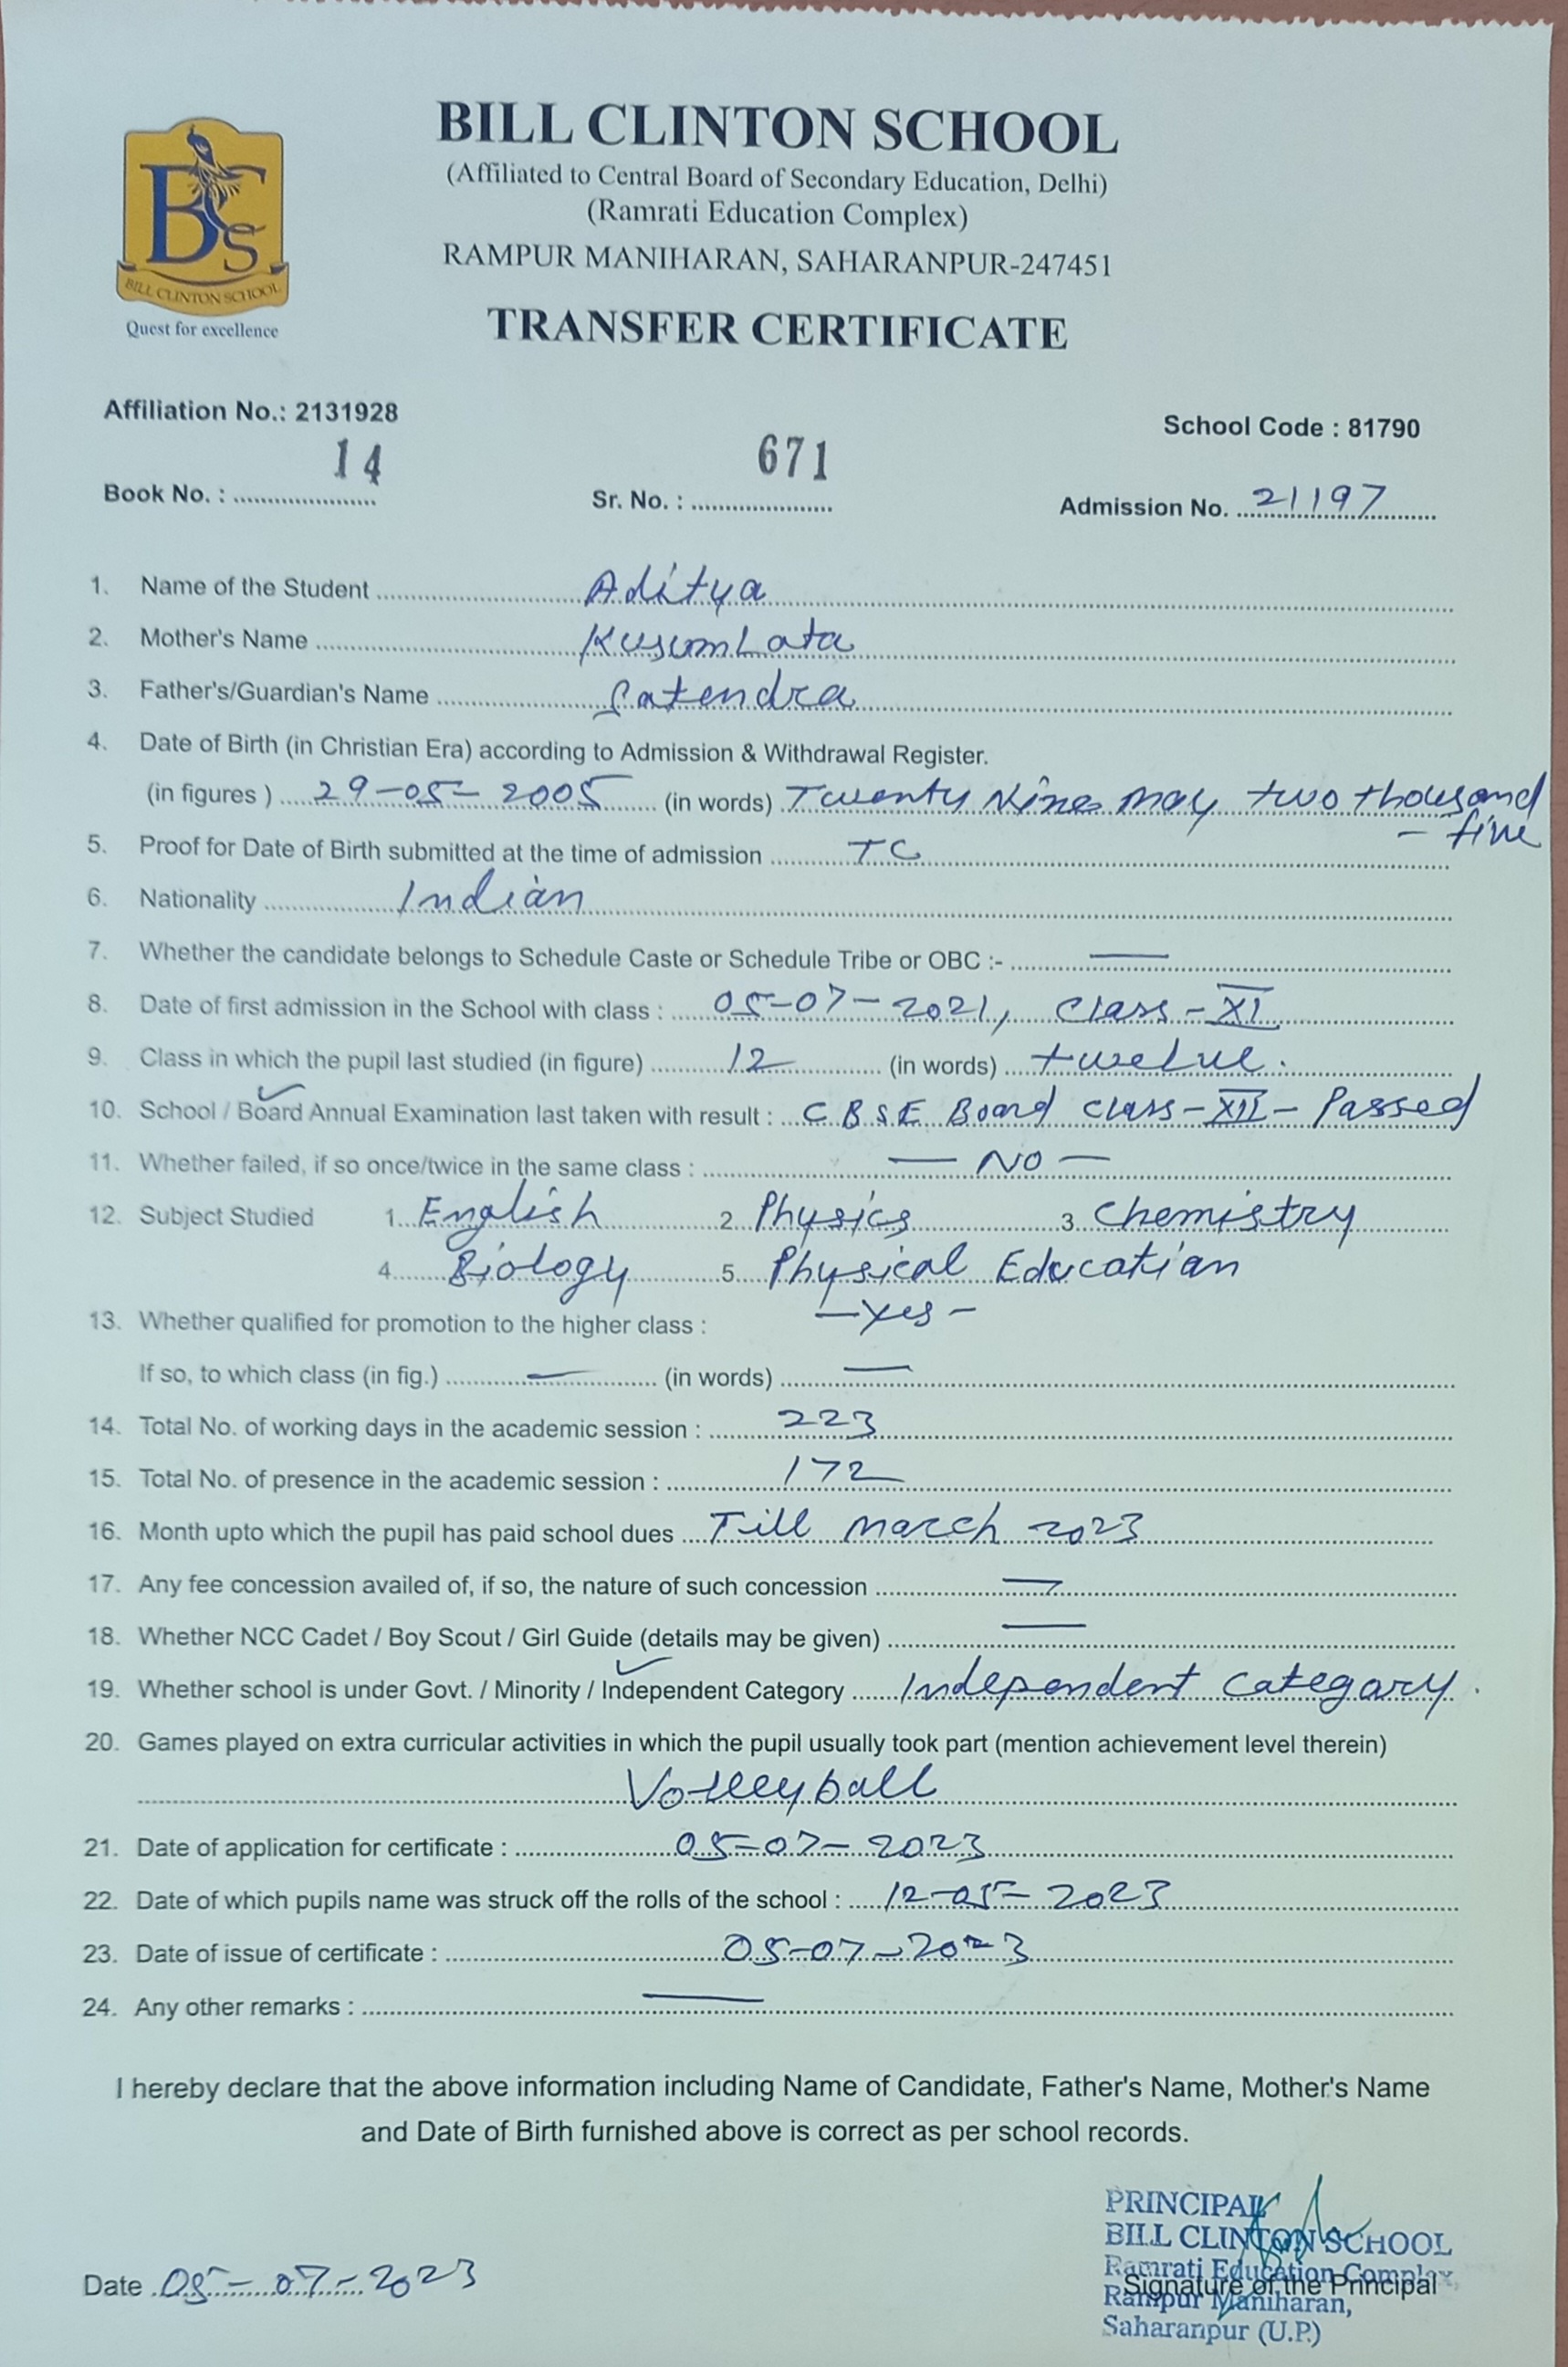 BILL CLINTON SCHOOL
(Affiliated to Central Board of Secondary Education, Delhi)
(Ramrati Education Complex)
RAMPUR MANIHARAN, SAHARANPUR-247451
BCS
BILL CLINTON SCHOOL
Quest for excellence
TRANSFER CERTIFICATE
Affiliation No.: 2131928 School Code : 81790
Book No. : 14 Sr. No. : 671 Admission No. 21197
1. Name of the Student Aditya
2. Mother's Name Kusum Lata
3. Father's/Guardian's Name Satendra
4. Date of Birth (in Christian Era) according to Admission & Withdrawal Register.
(in figures ) 29-05-2005 (in words) Twenty Nine may two thousand
- five
5. Proof for Date of Birth submitted at the time of admission TC
6. Nationality Indian
7. Whether the candidate belongs to Schedule Caste or Schedule Tribe or OBC :- —
8. Date of first admission in the School with class : 05-07-2021, Class-XI
9. Class in which the pupil last studied (in figure) 12 (in words) twelve.
10. School / Board Annual Examination last taken with result : CBSE Board class-XII- Passed
11. Whether failed, if so once/twice in the same class : — NO —
12. Subject Studied 1. English 2. Physics 3. Chemistry
4. Biology 5. Physical Education
13. Whether qualified for promotion to the higher class : — Yes -
If so, to which class (in fig.) — (in words) —
14. Total No. of working days in the academic session : 223
15. Total No. of presence in the academic session : 172
16. Month upto which the pupil has paid school dues Till march 2023
17. Any fee concession availed of, if so, the nature of such concession —
18. Whether NCC Cadet / Boy Scout / Girl Guide (details may be given) —
19. Whether school is under Govt. / Minority / Independent Category Independent Category.
20. Games played on extra curricular activities in which the pupil usually took part (mention achievement level therein)
Volleyball
21. Date of application for certificate : 05-07-2023
22. Date of which pupils name was struck off the rolls of the school : 12-05-2023
23. Date of issue of certificate : 05-07-2023
24. Any other remarks : —
I hereby declare that the above information including Name of Candidate, Father's Name, Mother's Name
and Date of Birth furnished above is correct as per school records.
PRINCIPAL
BILL CLINTON SCHOOL
Ramrati Education Complex,
Date 05-07-2023 Signature of the Principal
Rampur Maniharan,
Saharanpur (U.P.)